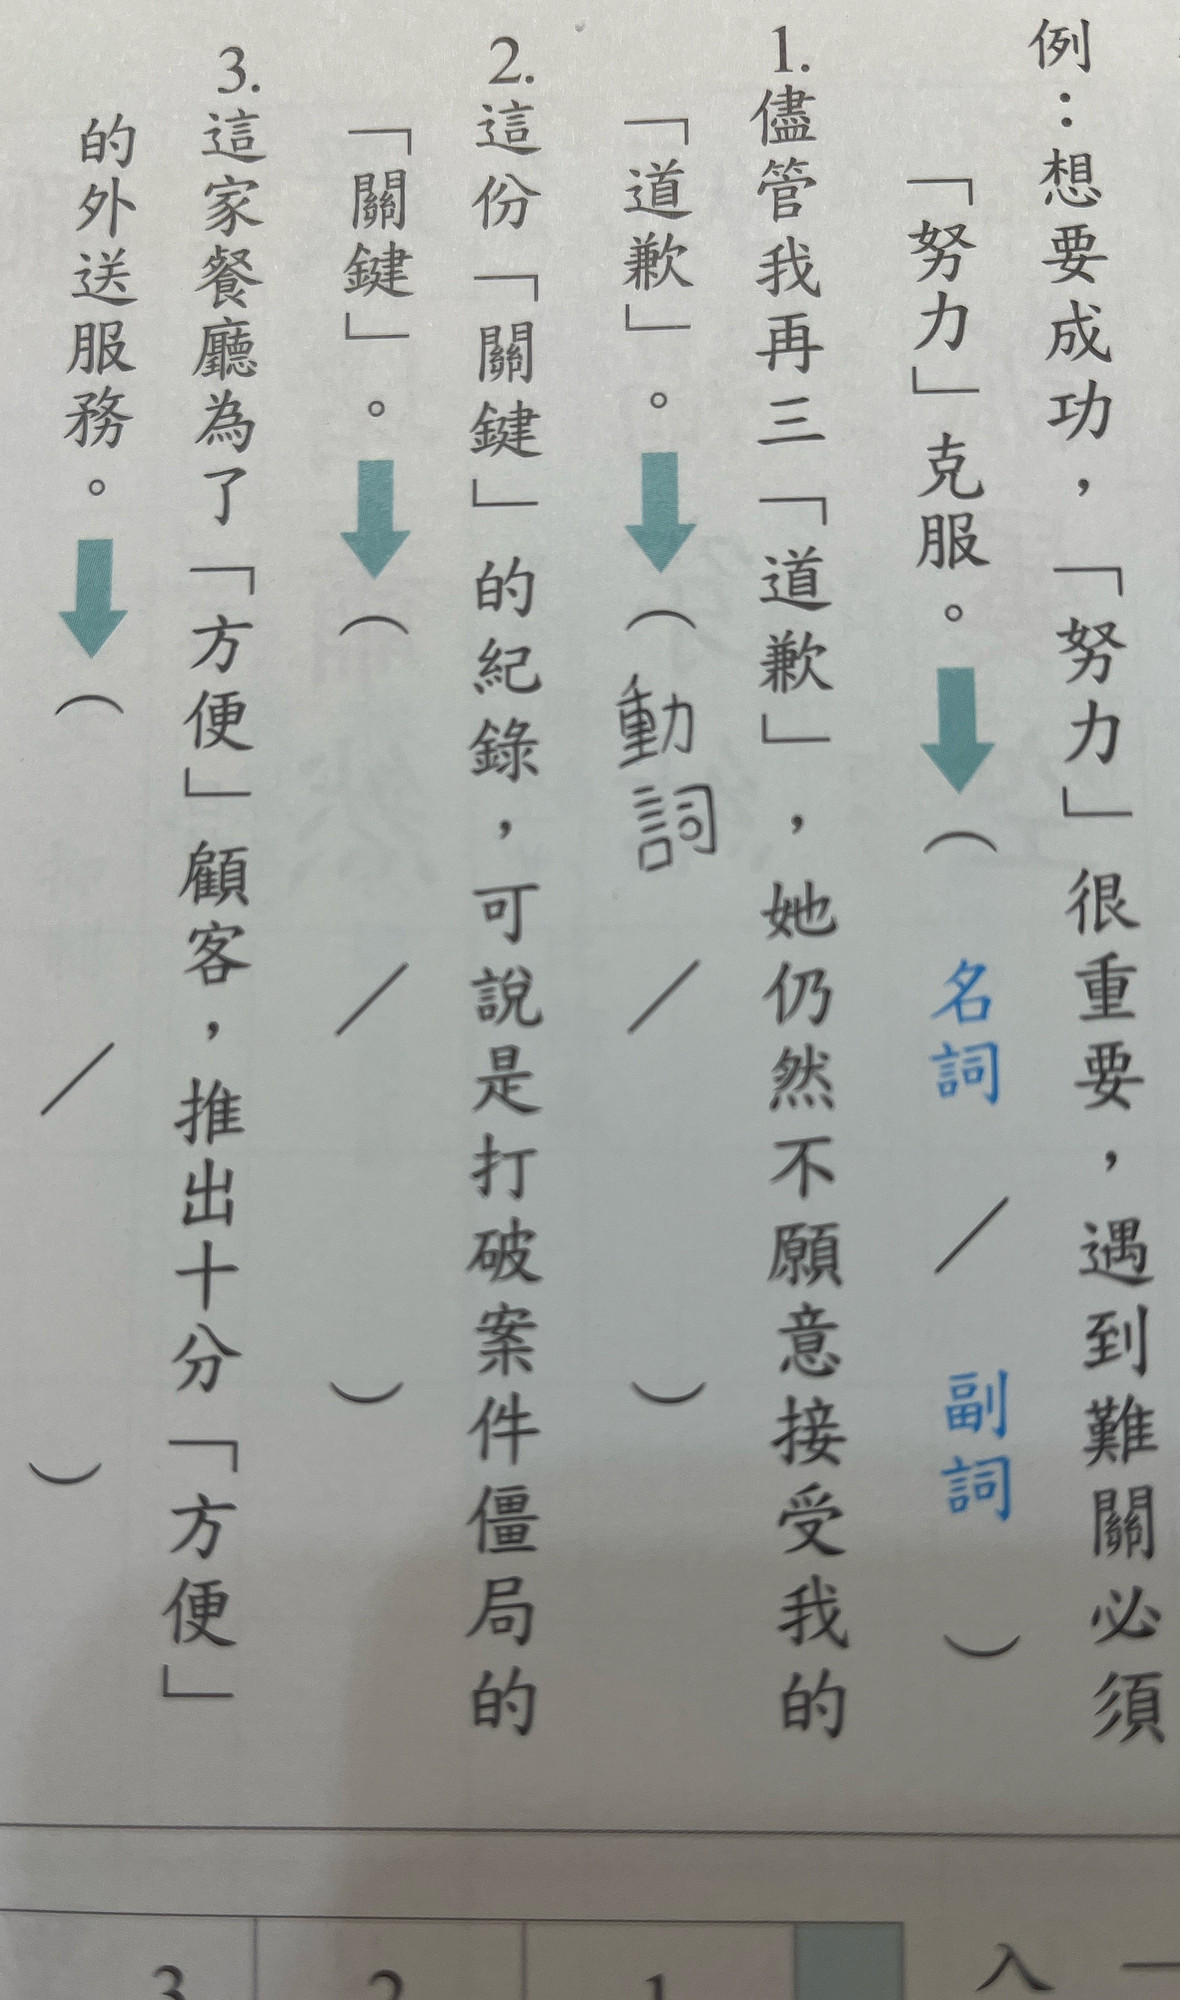 例：想要成功，「努力」很重要，遇到難關必須
「努力」克服。（名詞／副詞）
1.儘管我再三「道歉」，她仍然不願意接受我的
「道歉」。（動詞／）
2.這份「關鍵」的紀錄，可說是打破案件僵局的
「關鍵」。（／）
3.這家餐廳為了「方便」顧客，推出十分「方便」
的外送服務。（／）
一
入
1
2
3